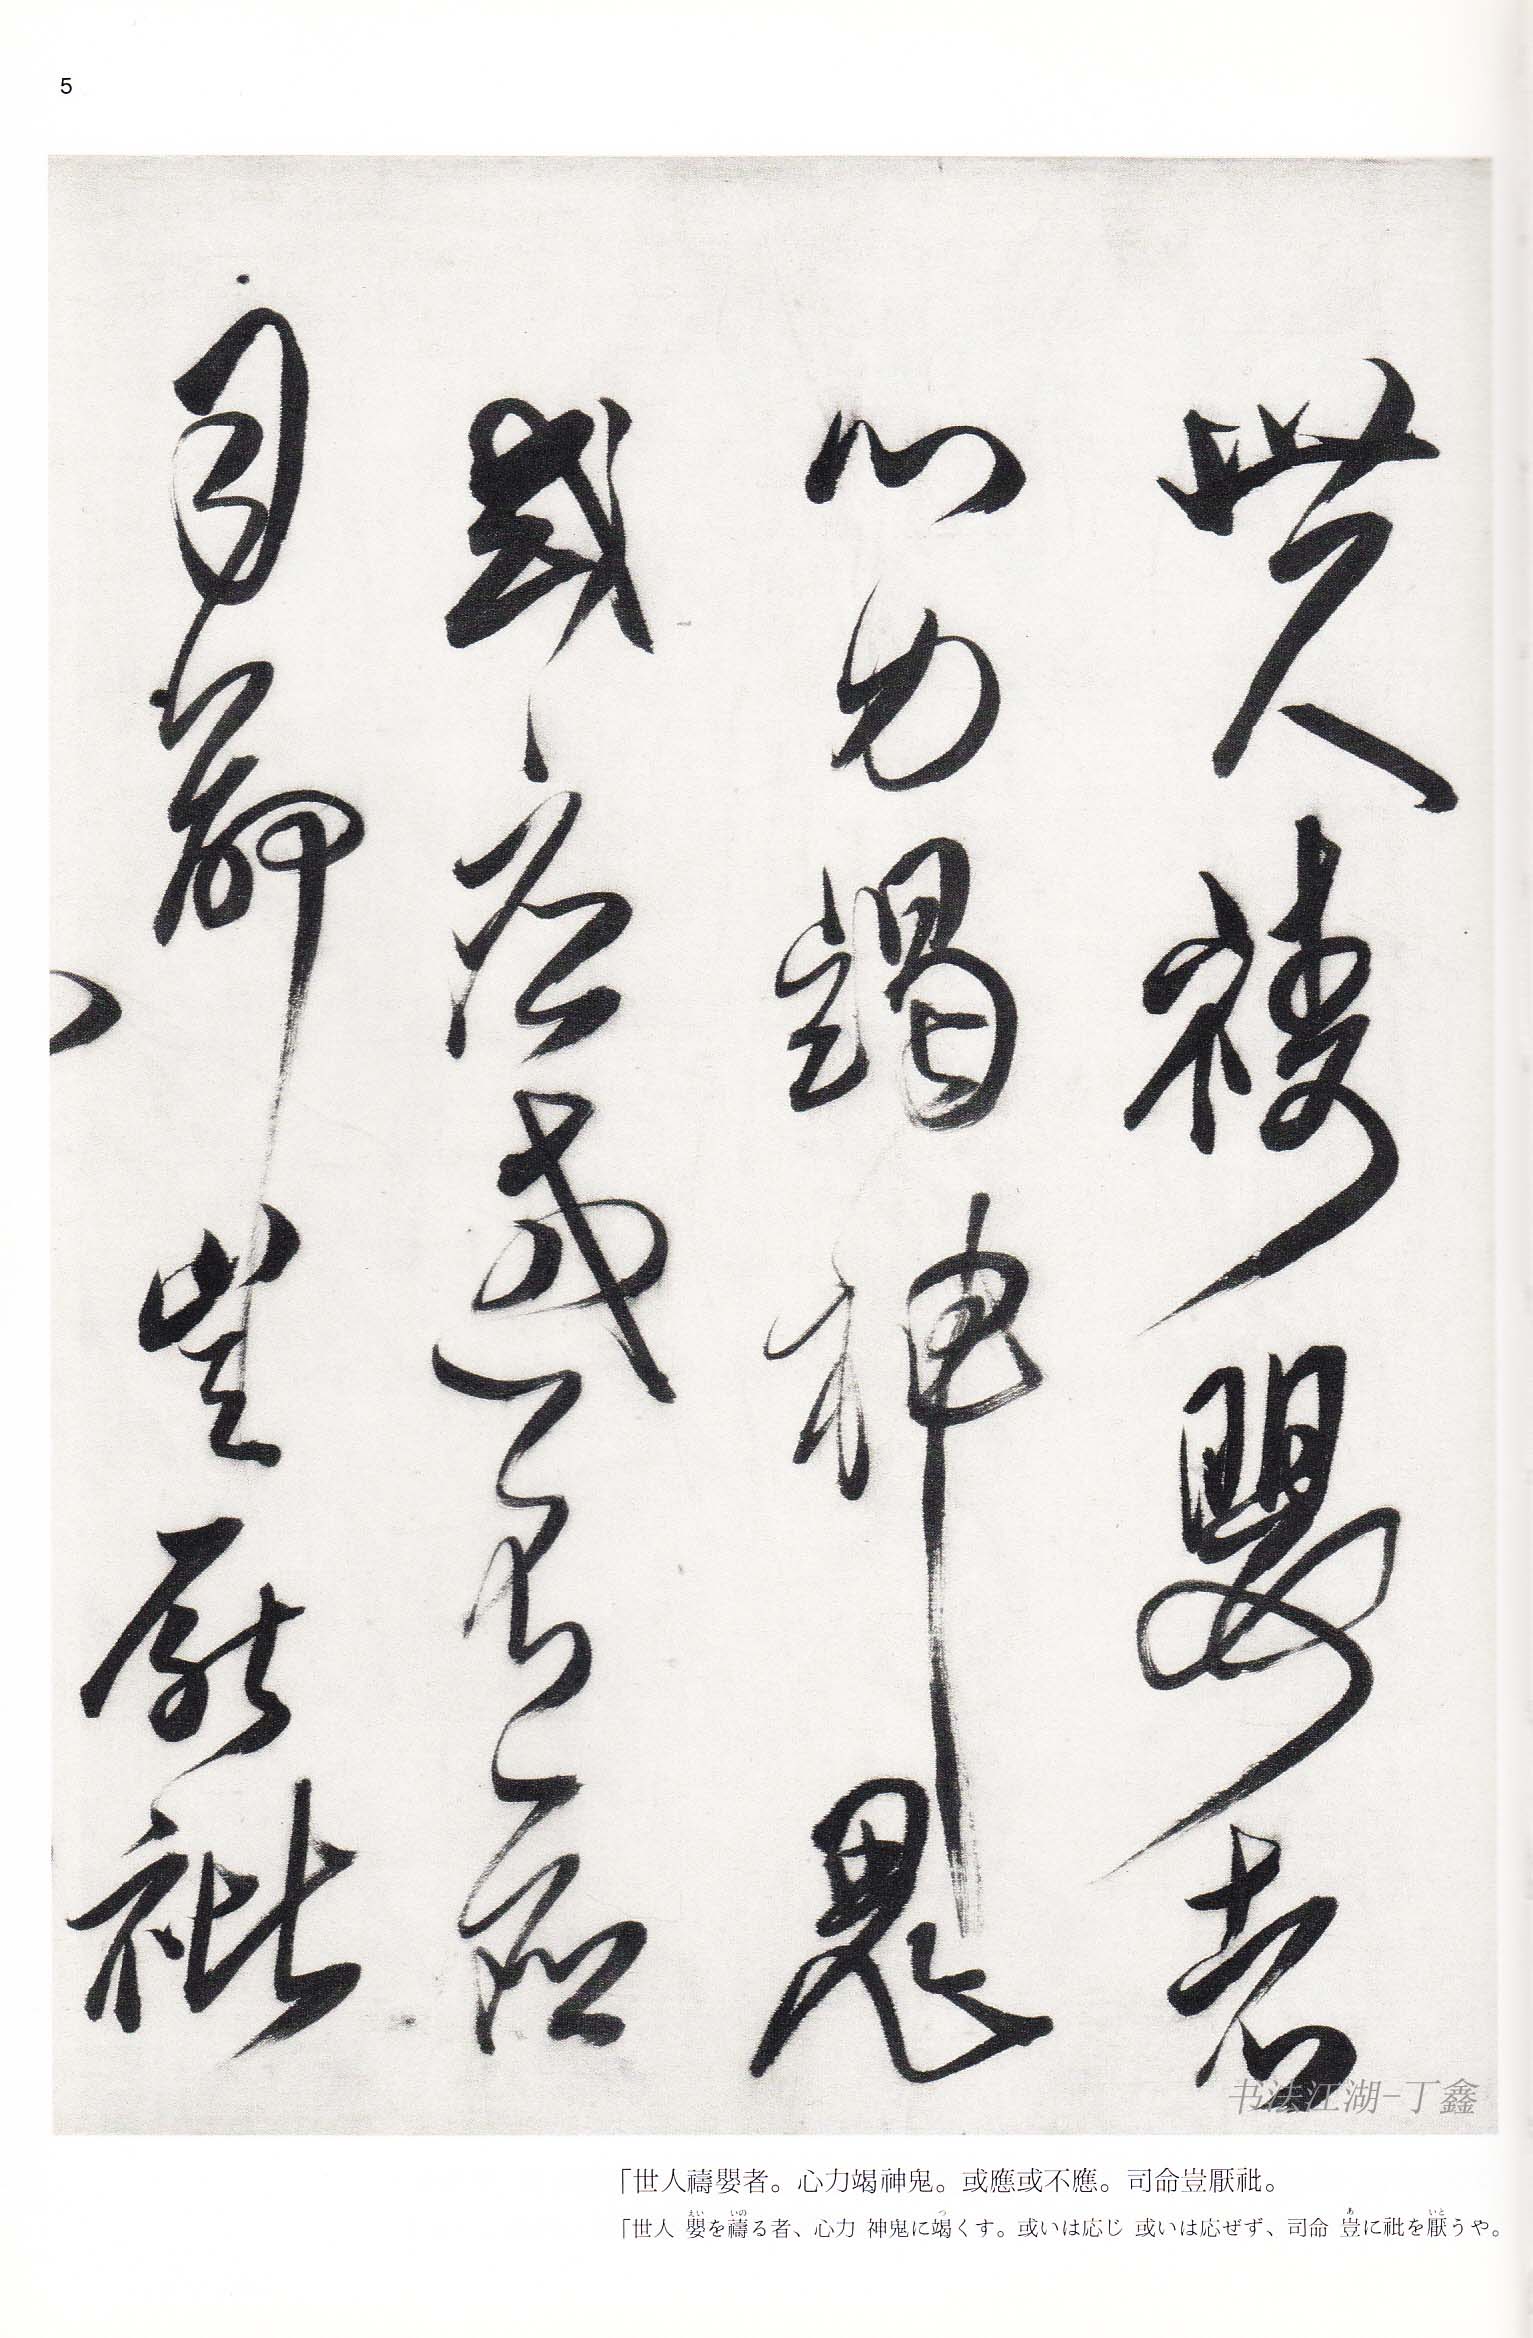 5
世人禱嬰者
心力竭神鬼
或應或不應
司命豈厭祉
「世人禱嬰者。心力竭神鬼。或應或不應。司命豈厭祉。
「世人 嬰を禱る者、心力 神鬼に竭くす。或いは応じ 或いは応ぜず、司命 豈に祉を厭うや。
书法江湖-丁鑫